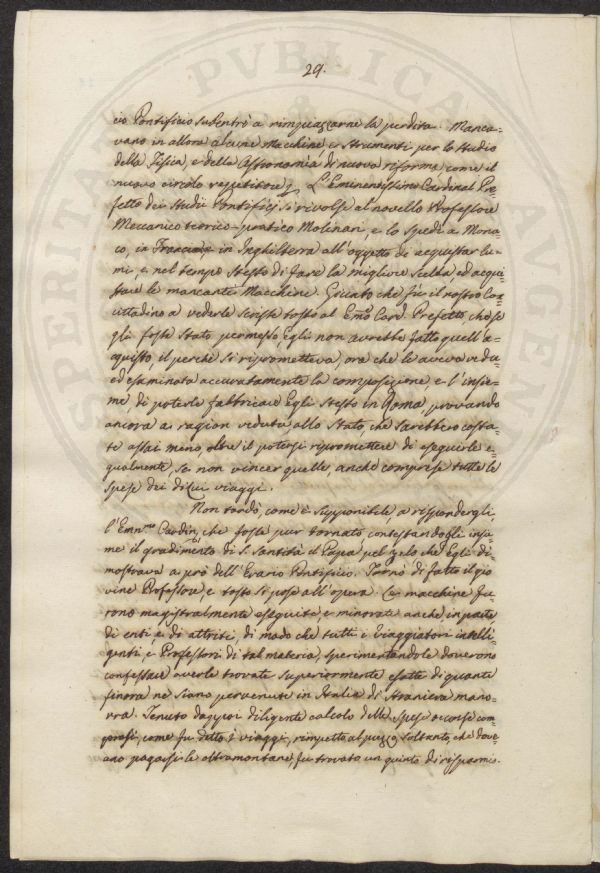 29.
cio Pontificio subentrò a rimpiazzarne la perdita. Manca-
vano in allora alcune Macchine, e Strumenti per lo studio
della Fisica, e della Astronomia di nuova riforma come il
nuovo circolo repetitore &. L'Eminentissimo Cardinal Pre-
fetto dei Studii Pontificj si rivolse al novello Professore
Meccanico teorico-pratico Molinari, e lo spedì a Mona-
co, in Francia e in Inghilterra all'oggetto di acquistar lu-
mi, e nel tempo stesso di fare la migliore Scelta ed acqui-
stare le mancanti Macchine. Giunto che fù il nostro Con-
cittadino a vederle scrisse tosto al Emo Card. Prefetto, che se
gli fosse stato permesso, Egli non avrebbe fatto quell'a-
cquisto, il perchè si riprometteva, ora che le aveva vedu-
ed esaminata accuratamente la composizione, e l'insie-
me, di poterle fabbricare Egli stesso in Roma, provando
ancora a ragion veduta allo Stato, che sarebbero costa-
te assai meno, oltre il potersi ripromettere di eseguirle e-
gualmente, se non vincer quelle, anche comprese tutte le
spese dei di Lui viaggi.
Non tardò, come è supponibile, a rispondergli
l'Emnmo Cardin. che fosse pur tornato contestandogli insie
me il gradimento di S. Santità il Papa pel zelo che Egli di-
mostrava a prò dell'Erario Pontificio. Tornò di fatto il gio
vine Professore, e tosto si pose all'opera. Le macchine fu
rono magistralmente eseguite, e minorate anche in parte
di enti e di attriti, di modo che tutti i Viaggiatori intelli-
genti, e Professori di tal materia, sperimentandole doverono
confessare averle trovate superiormente esatte di quante
finora ne siano pervenute in Italia di straniera mano-
vra. Tenuto dappoi diligente calcolo delle spese occorse com-
presi, come fu detto i viaggi, rimpetto al prezzo soltanto, che dove-
ano pagarsi le oltramontane, fu trovato un quinto di risparmio.